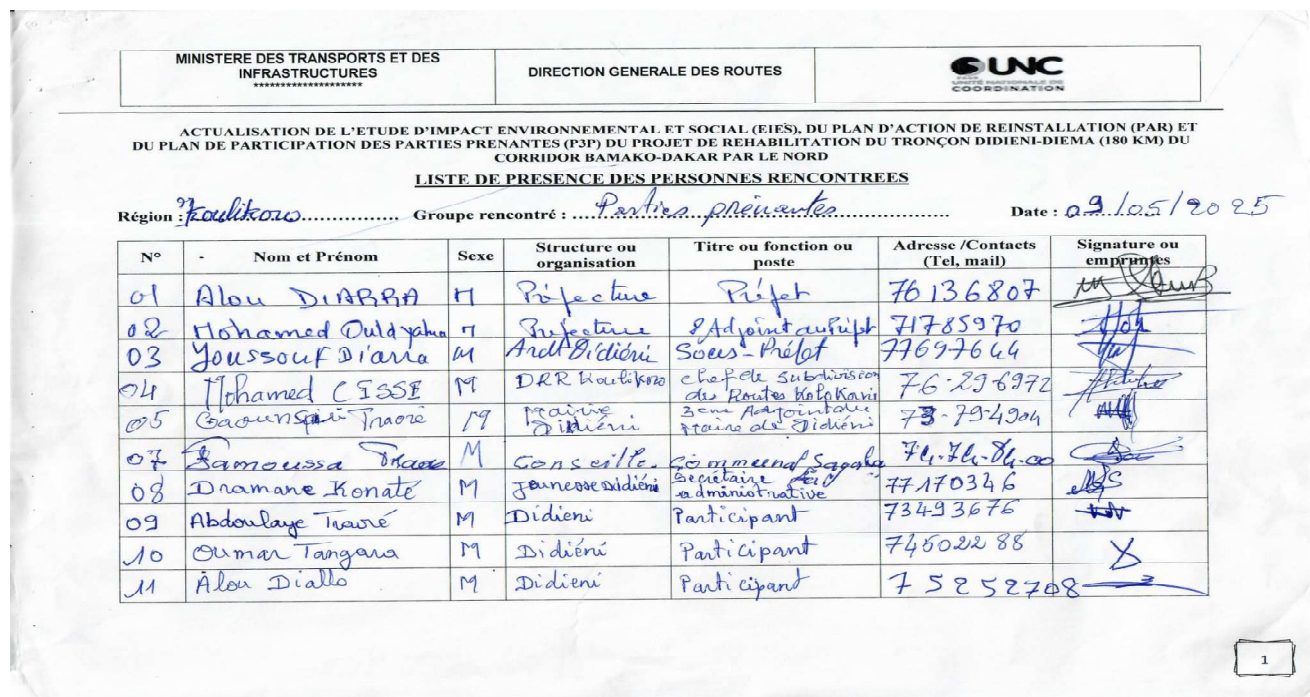 MINISTERE DES TRANSPORTS ET DES
INFRASTRUCTURES
********************
DIRECTION GENERALE DES ROUTES
UNC
UNITÉ NATIONALE DE
COORDINATION
ACTUALISATION DE L'ETUDE D'IMPACT ENVIRONNEMENTAL ET SOCIAL (EIES), DU PLAN D'ACTION DE REINSTALLATION (PAR) ET
DU PLAN DE PARTICIPATION DES PARTIES PRENANTES (P3P) DU PROJET DE REHABILITATION DU TRONÇON DIDIENI-DIEMA (180 KM) DU
CORRIDOR BAMAKO-DAKAR PAR LE NORD
LISTE DE PRESENCE DES PERSONNES RENCONTREES
Région : Koulikoro Groupe rencontré : Parties prénantes Date : 09/05/2025
N° - Nom et Prénom Sexe Structure ou organisation Titre ou fonction ou poste Adresse /Contacts (Tel, mail) Signature ou empruntes
01 Alou DIARRA M Préfecture Préfet 76136807
02 Mohamed Ould yahia M Prefecture 2 Adjoint au Prefet 71785970
03 Youssouf Diarra M Ardt Didiéni Sous-Préfet 77697644
04 Mohamed CISSE M DRR Koulikoro chef de Subdivision des Routes Kolokani 76-296972
05 Traoré M Mairie Didiéni 3ème Adjoint du Maire de Didiéni 73-79-4904
07 Samoussa Traore M Conseille. Communal 74-74-84-00
08 Dramane Konaté M Jeunesse Didiéni Secrétaire administrative 77170346
09 Abdoulaye Traoré M Didieni Participant 73493676
10 Oumar Tangara M Didiéni Participant 74502288
11 Alou Diallo M Didieni Participant 75252708
1